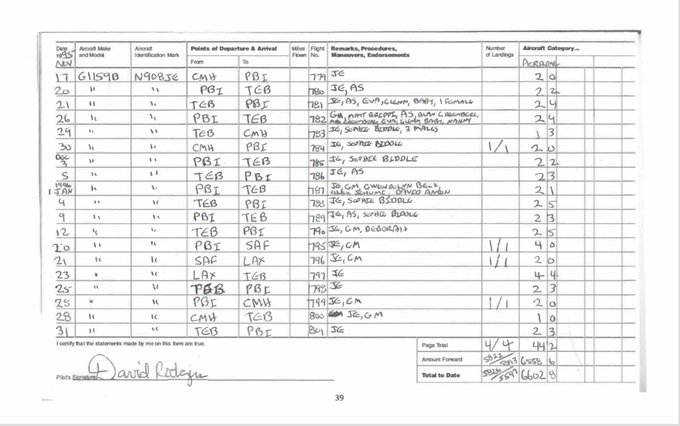 Date 1995 Aircraft Make and Model Aircraft Identification Mark Points of Departure & Arrival Miles Flown Flight No. Remarks, Procedures, Maneuvers, Endorsements Number of Landings Aircraft Category...
NOV From To AIRPLANE
17 G1159B N908JE CMH PBI 779 JE 2 0
20 " " PBI TEB 780 JE, AS 2 2
21 " " TEB PBI 781 JE, AS, EVA, GLENN, BABY, 1 FEMALE 2 4
26 " " PBI TEB 782 GM, AS, EVA, GLENN, BABY, NANNY 2 4
29 " " TEB CMH 783 JE, SOPHIE BIDDLE, 3 MALES 1 3
30 " " CMH PBI 784 JE, SOPHIE BIDDLE 1/1 2 0
DEC 3 " " PBI TEB 785 JE, SOPHIE BIDDLE 2 2
5 " " TEB PBI 786 JE, AS 2 3
1996 1 JAN " " PBI TEB 787 JE, GM, GWENDOLYN BECK, DAVID 2 1
4 " " TEB PBI 788 JE, SOPHIE BIDDLE 2 5
9 " " PBI TEB 789 JE, AS, SOPHIE BIDDLE 2 3
12 " " TEB PBI 790 JE, GM, DEBORAH 2 5
20 " " PBI SAF 795 JE, GM 1/1 4 0
21 " " SAF LAX 796 JE, GM 1/1 2 0
23 " " LAX TEB 797 JE 4 4
25 " " TEB PBI 798 JE 2 3
25 " " PBI CMH 799 JE, GM 1/1 2 0
28 " " CMH TEB 800 JE, GM 1 0
31 " " TEB PBI 801 JE 2 3
I certify that the statements made by me on this form are true. Page Total 4/4 44 2
Amount Forward 5822/5593 6558 6
Pilot's Signature David Rodgers Total to Date 5826/5597 6602 8
39